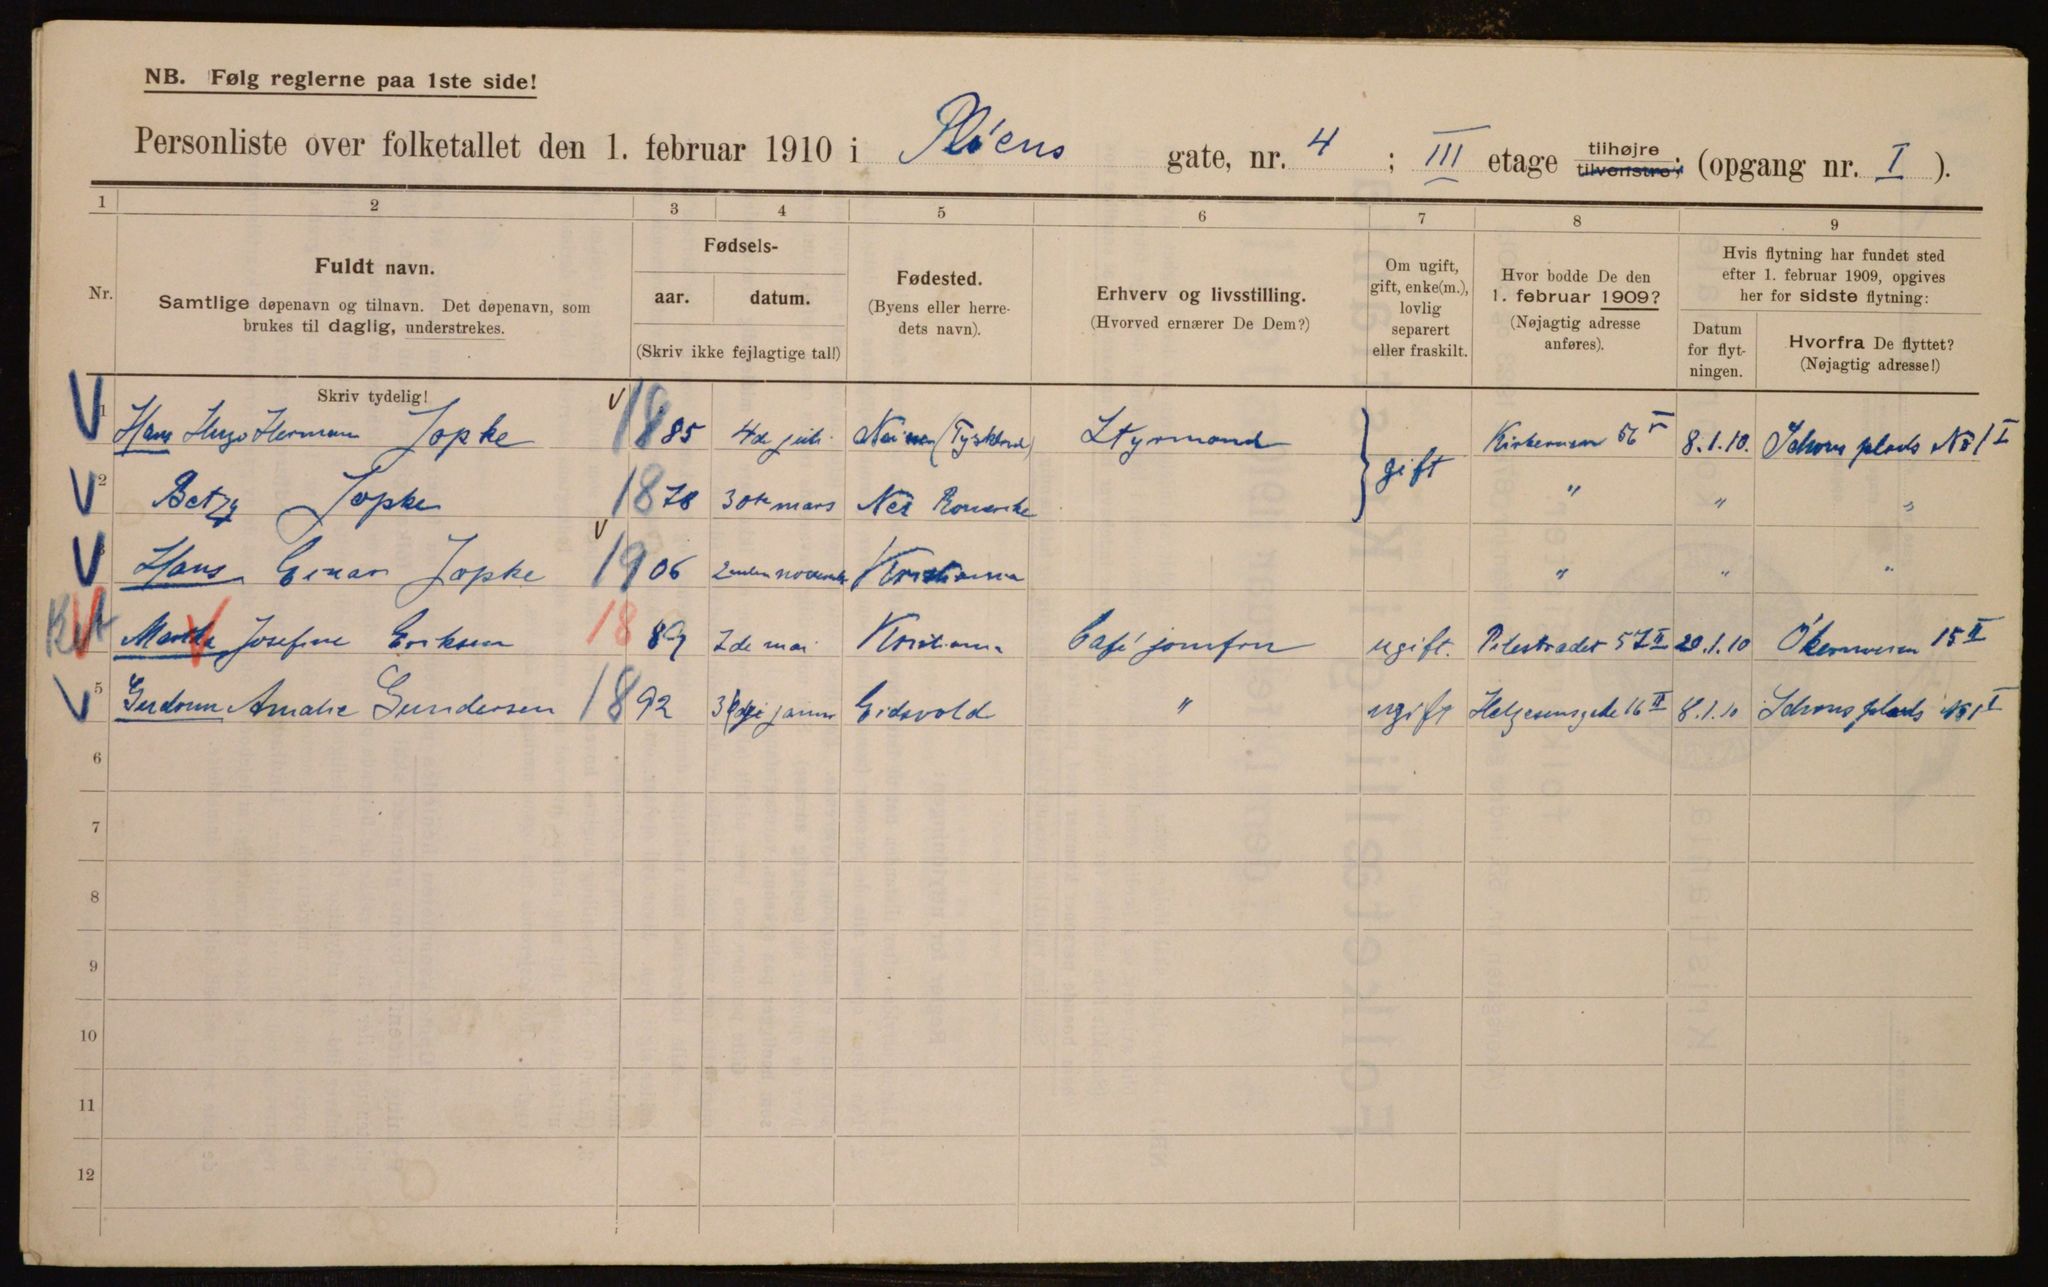 NB. Følg reglerne paa 1ste side!
Personliste over folketallet den 1. februar 1910 i Pløens gate, nr. 4 ; III etage tilhøjre tilvenstre; (opgang nr. I ).
1 2 3 4 5 6 7 8 9
Nr.
Fuldt navn.
Samtlige døpenavn og tilnavn. Det døpenavn, som
brukes til daglig, understrekes.
Skriv tydelig!
Fødsels-
aar. datum.
(Skriv ikke fejlagtige tal!)
Fødested.
(Byens eller herre-
dets navn).
Erhverv og livsstilling.
(Hvorved ernærer De Dem?)
Om ugift,
gift, enke(m.),
lovlig
separert
eller fraskilt.
Hvor bodde De den
1. februar 1909?
(Nøjagtig adresse
anføres).
Hvis flytning har fundet sted
efter 1. februar 1909, opgives
her for sidste flytning:
Datum
for flyt-
ningen.
Hvorfra De flyttet?
(Nøjagtig adresse!)
1 Hans Hugo Herman Jopke 1885 4de juli (Tyskland) Styrmand gift Kirkeveien 56 V 8.1.10. Schous plads No 1 I
2 Betzy Jopke 1878 30te mars Nes Romerike " " "
3 Hans Einar Jopke 1906 2 november Kristiania " " "
Martha Josefine Eriksen 1889 7de mai Kristiania Café jomfru ugift. Pilestrædet 57 II 20.1.10 Økernveien 15 II
5 Gudrun Amalie Gundersen 1892 januar Eidsvold " ugift Helgesensgate 16 II 8.1.10 Schous plads No 1 I
6
7
8
9
10
11
12